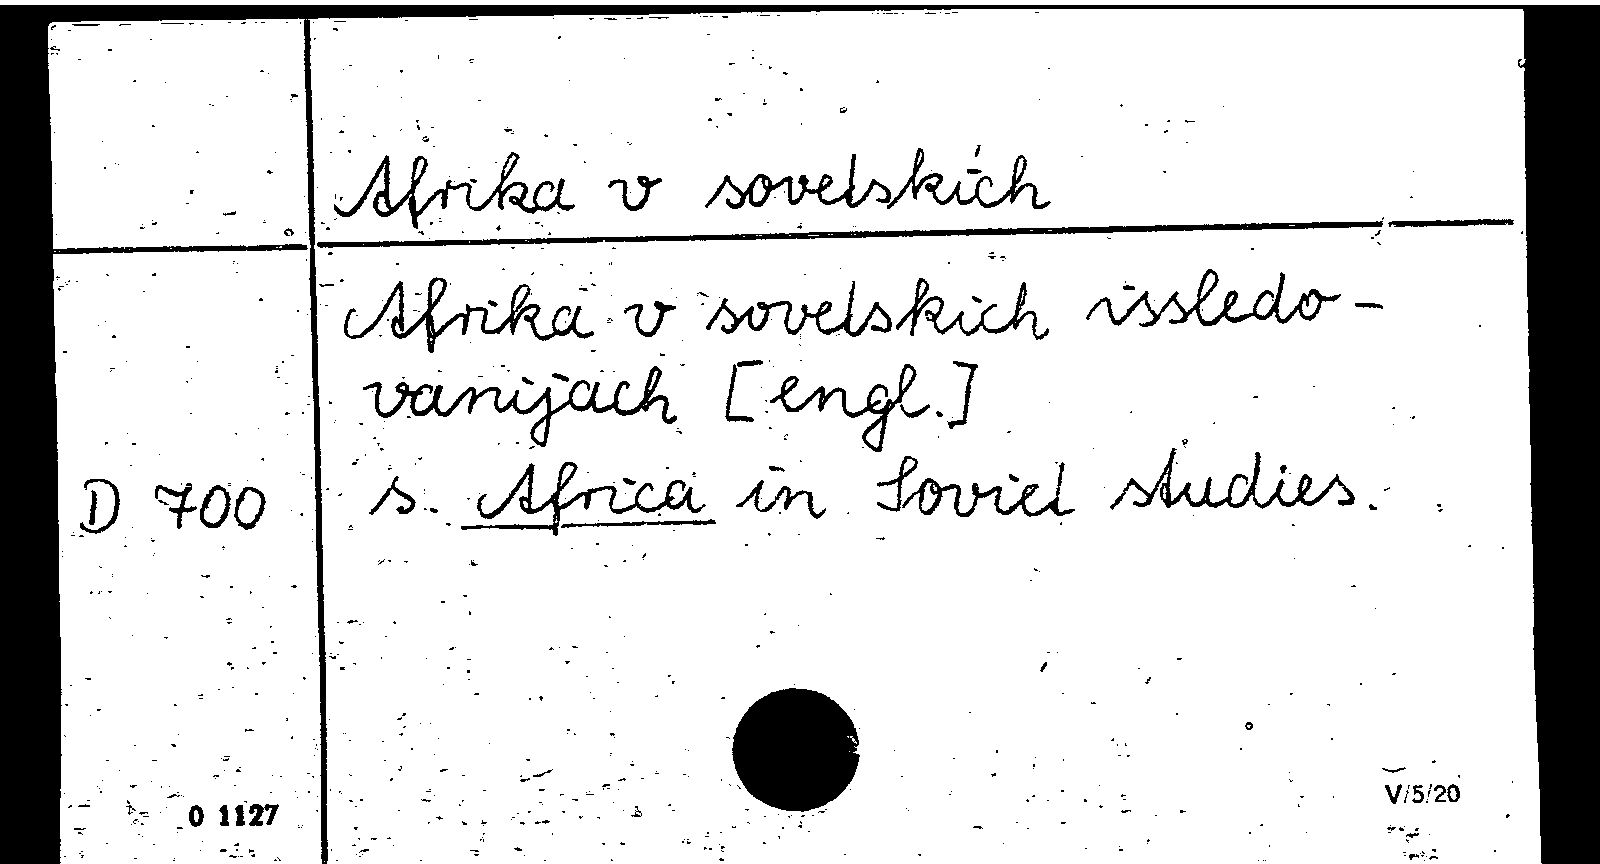 Afrika v sovetskich
Afrika v sovetskich issledo-
vanijach [engl.]
D 700 s. Africa in Soviet studies.
0 1127
V/5/20